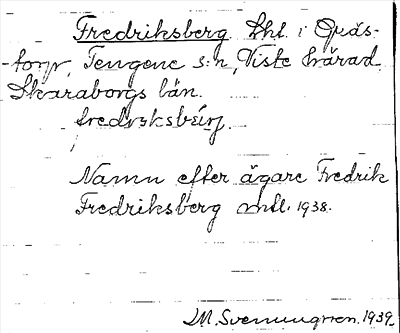 Fredriksberg lht. i Gräs-
torp, Tengene s:n, Viste härad
Skaraborgs län.
fredrsksbärj.
Namn efter ägare Fredrik
Fredriksberg mtl. 1938.
M. Svenungsson. 1939.